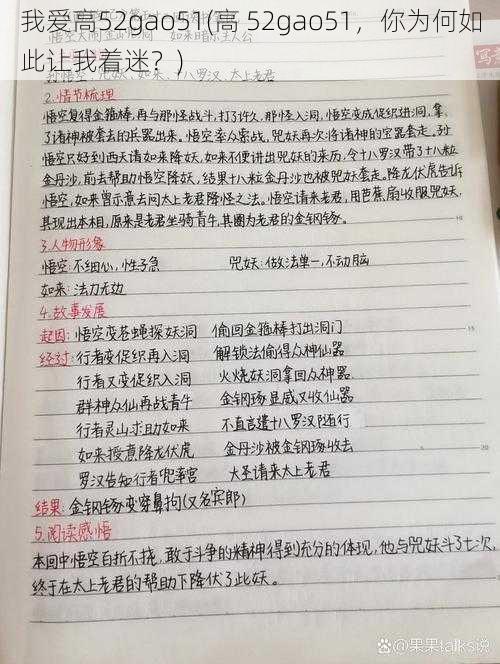 我爱高52gao51(高 52gao51，你为何如
此让我着迷？)
2.情节梳理
悟空复得金箍棒,再与那怪战斗,打了许久,那怪入洞,悟空变成促织进洞,拿
了诸神被套去的兵器出来。悟空率众索战,兕妖再次将诸神的宝器套走。孙
悟空只好到西天请如来降妖,如来不便讲出兕妖的来历,令十八罗汉带了十八粒
金丹沙,前去帮助悟空降妖,结果十八粒金丹沙也被兕妖套走。降龙伏虎告诉
悟空,如来曾示意去问太上老君降怪之法。悟空请来老君,用芭蕉扇收服兕妖,
其现出本相,原来是老君坐骑青牛,其圈为老君的金钢镯。
10
3.人物形象
悟空:不细心,性子急 兕妖:做法单一,不动脑
如来:法力无边
4.故事发展
起因:悟空变苍蝇探妖洞 偷回金箍棒打出洞门
15
经过:行者变促织再入洞 解锁法偷得众神仙器
行者又变促织入洞 火烧妖洞拿回众神器
群神众仙再战青牛 金钢镯显威又收仙器
行者灵山求助如来 不直言遣十八罗汉随行
如来授意降龙伏虎 金丹沙被金钢镯收去
20
罗汉告知行者兜率宫 大圣请来太上老君
结果:金钢镯变穿鼻拘(又名宾郎)
5.阅读感悟
本回中悟空百折不挠,敢于斗争的精神得到充分的体现,他与兕妖斗了七次,
终于在太上老君的帮助下降伏了此妖。
@果果talks说